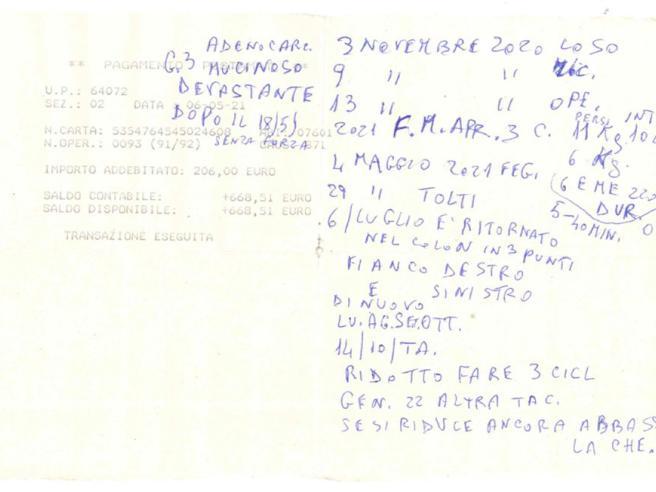 ** PAGAMENTO
U.P.: 64072
SEZ.: 02 DATA 06-05-21
N.CARTA: 5354764545024608 07601
N.OPER.: 0093 (91/92) 871
IMPORTO ADDEBITATO: 206,00 EURO
SALDO CONTABILE: +668,51 EURO
SALDO DISPONIBILE: +668,51 EURO
TRANSAZIONE ESEGUITA
ADENOCARC.
G3 MUCINOSO
DEVASTANTE
DOPO IL 18/5
SENZA FORZA
3 NOVEMBRE 2020 LO SO
9 " "
13 " " OPE.
PERSI INT
2021 F.M.APR. 3 C. 11 Kg. 10
6 Kg.
4 MAGGIO 2021 FEG.
6 EME 220
29 " TOLTI
DUR.
5-40 MIN.
6/LUGLIO E' RITORNATO
NEL COLON IN 3 PUNTI
FIANCO DESTRO
E SINISTRO
DI NUOVO
LU.AG.SE.OTT.
14/10/TA.
RIDOTTO FARE 3 CICL
GEN. 22 ALTRA TAC.
SE SI RIDUCE ANCORA ABBASS
LA CHE.